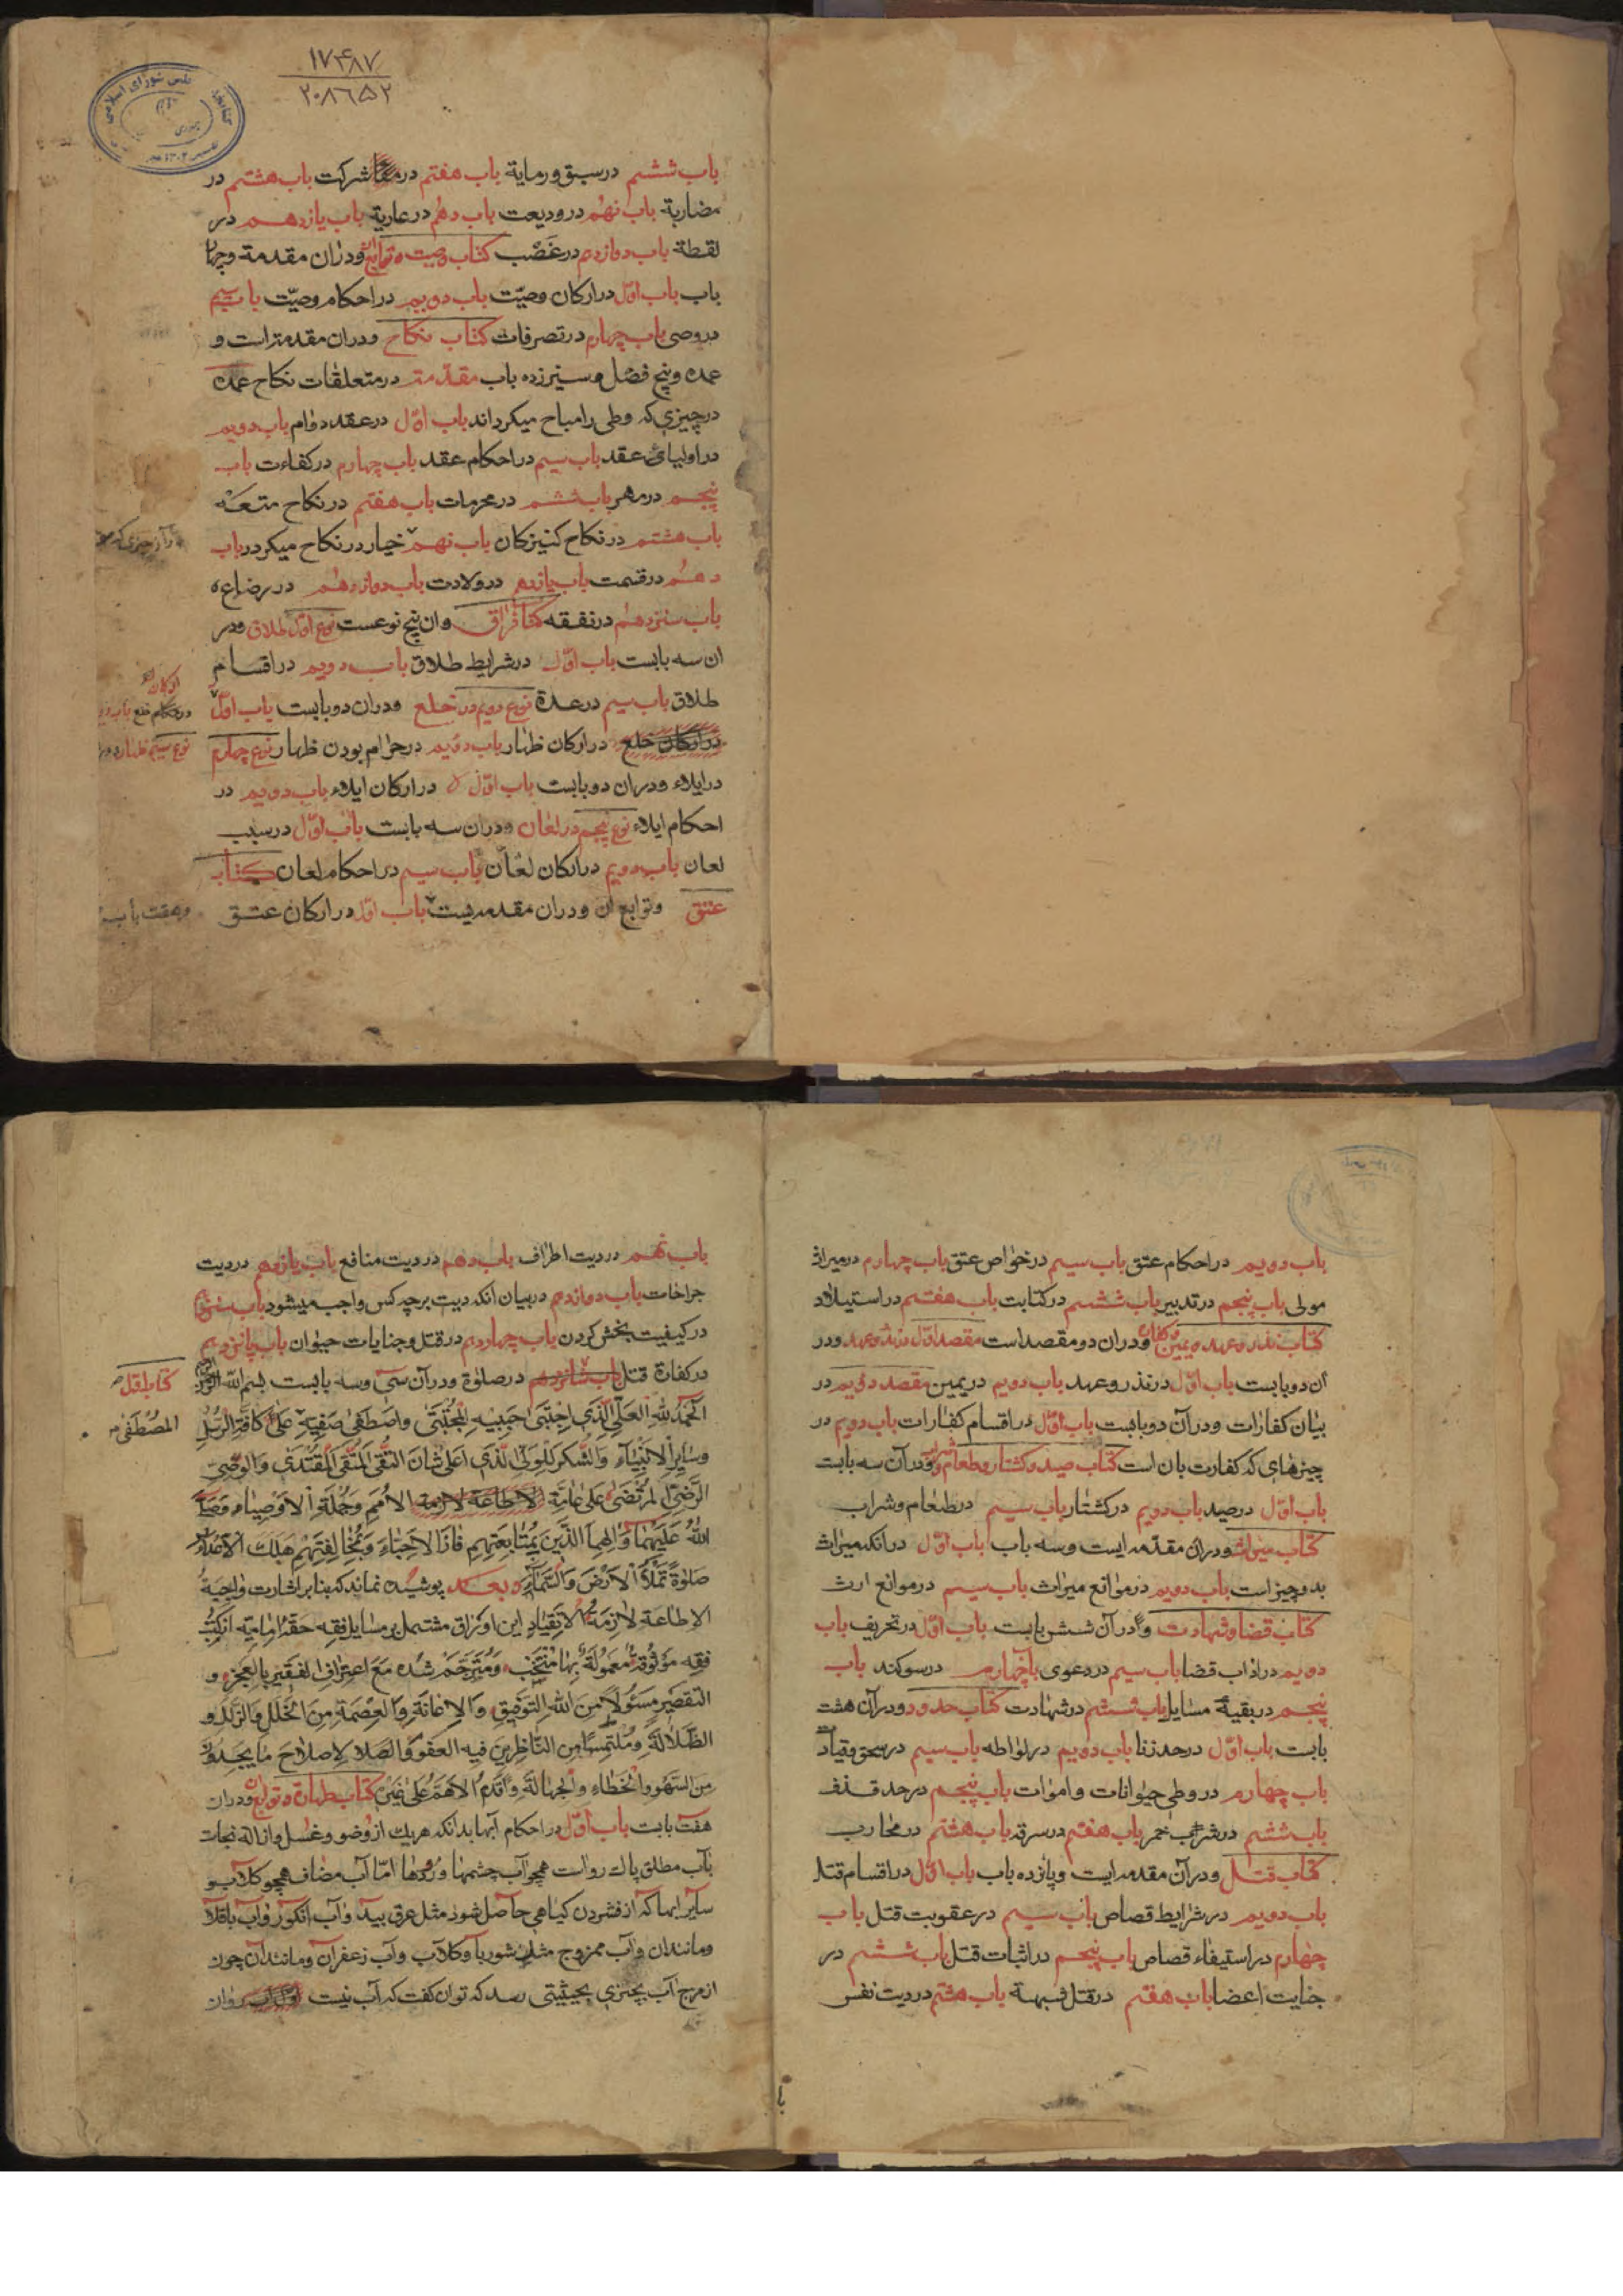 ۱۷۴۸۷
۲۰۸۶۵۲
باب ششم در سبق و رمایة باب هفتم در شرکت باب هشتم در
مضاربة باب نهم در ودیعت باب دهم در عاریة باب یازدهم در
لقطة باب دوازدهم در غصب کتاب وصیت و توابع ان و دران مقدمة و چهار
باب باب اوّل در ارکان وصیّت باب دویم در احکام وصیّت باب سیم
در وصی باب چهارم در تصرفات کتاب نکاح و دران مقدمه است و
عمده و پنج فصل و سیزده باب مقدّمه در متعلقات نکاح عمده
در چیزی که وطی را مباح میکرداند باب اوّل در عقد دوام باب دویم
در اولیای عقد باب سیم در احکام عقد باب چهارم در کفاءت باب
پنجم در مهر باب ششم در محرمات باب هفتم در نکاح متعه
باب هشتم در نکاح کنیزکان باب نهم خیار در نکاح میکردر باب
دهم در قسمت باب یازدهم در ولادت باب دوازدهم در رضاع
باب سیزدهم در نفقه کتاب فراق و ان پنج نوعست نوع اوّل طلاق و در
ان سه بابست باب اوّل در شرایط طلاق باب دویم در اقسام
طلاق باب سیم در عدة نوع دویم در خلع و دران دو بابست باب اوّل
ارکان
در احکام خلع باب دویم
نوع سیم ظهار و در
در ارکان خلع در ارکان ظهار باب دویم در حرام بودن ظهار نوع چهارم
در ایلاء و دران دو بابست باب اوّل در ارکان ایلاء باب دویم در
احکام ایلاء نوع پنجم در لعان و دران سه بابست باب اوّل در سبب
لعان باب دویم در ارکان لعان باب سیم در احکام لعان کتاب
عتق و توابع ان و دران مقدمه باب اوّل در ارکان عتق
باب دویم در احکام عتق باب سیم در خواص عتق باب چهارم در میراث
مولی باب پنجم در تدبیر باب ششم در کتابت باب هفتم در استیلاد
کتاب نذر و عهد و یمین و کفارات و دران دو مقصد است مقصد اوّل نذر و عهد و در
آن دو بابست باب اوّل در نذر و عهد باب دویم در یمین مقصد دویم در
بیان کفارات و در آن دو بابست باب اوّل در اقسام کفارات باب دویم در
چیزهای که کفارت بان است کتاب صید و کشتار و طعام و شراب و در آن سه بابت
باب اوّل در صید باب دویم در کشتار باب سیم در طعام و شراب
کتاب میراث و دران مقدمه ایست و سه باب باب اوّل در انکه میراث
بدو چیز است باب دویم در موانع میراث باب سیم در موانع ارث
کتاب قضا و شهادت و در آن شش بابت باب اوّل در تحریف باب
دویم در اداب قضا باب سیم در دعوی باب چهارم در سوکند باب
پنجم در بقیهٔ مسایل باب ششم در شهادت کتاب حدود و در آن هشت
بابت باب اوّل در حد زنا باب دویم در لواطه باب سیم در سحق و قیادت
باب چهارم در وطی حیوانات و اموات باب پنجم در حد قذف
باب ششم در شراب خمر باب هفتم در سرقه باب هشتم در محارب
کتاب قتل و در آن مقدمه ایست و پانزده باب باب اوّل در اقسام قتل
باب دویم در شرایط قصاص باب سیم در عقوبت قتل باب
چهارم در استیفاء قصاص باب پنجم در اثبات قتل باب ششم در
جنایت اعضا باب هفتم در قتل شبهة باب هشتم در دیت نفس
با
باب نهم در دیت اطراف باب دهم در دیت منافع باب یازدهم در دیت
جراحات باب دوازدهم در بیان انکه دیت بر چه کس واجب میشود باب سیزدهم
در کیفیت بخش کردن باب چهاردهم در قتل و جنایات حیوان باب پانزدهم
در کفارة قتل باب شانزدهم در صلوة و در آن سی و سه بابست بسم الله الرحمن
اَلْحَمْدُ لِلّهِ الْعَلِیِّ الَّذِی اجْتَبی حَبِیبِهِ الْمُجْتَبی وَاصْطَفی صَفِیِّهِ عَلی کافَّةِ الرُّسُلِ
المصطفی
وسایر الانبیاء والشکر للولی الذی اعلی شان التقی المتقی المقتدی والوصی
الرضی المرتضی علی عامة الاطاعة لازمة الامم وجملة الاوصیاء فصلی
الله علیهما والهما الذین بمتابعتهم فاز الاحباء وبمخالفتهم هلک الاعداء
صلوة تملا الارض والسماء وبعد پوشیده نماند که بنا بر اشارت واجبة
الاطاعة لازمة الانقیاد این اوراق مشتمل بر مسایل فقه حقه امامیه از کتب
فقه موثوقه معمولة بها منتخب و مترجم شده مع اعتراف الفقیر بالعجز و
التقصیر مسئولا من الله التوفیق والاعانة والعصمة من الخلل والزلل و
الضلالة وملتمسا من الناظرین فیه العفو والصلاح لاصلاح ما یجدون
من السهو والخطاء والجهالة واقدم الاهم علی غیره کتاب طهارة و توابع ان و دران
هفت بابت باب اوّل در احکام آبها بدانکه هریک از وضو و غسل و ازاله نجاست
بآب مطلق پاک رواست همچو آب چشمها و رودها امّا آب مضاف همچو کلاب و
سایر ابها که از فشردن کیاهی حاصل شود مثل عرق بید و آب انکور و آب باقلا
و مانندان و آب ممزوج مثل شوربا و کلاب و آب زعفران و مانند آن چون
از مزج آب بچیزی بحیثیتی رسد که توان کفت که آب نیست روان